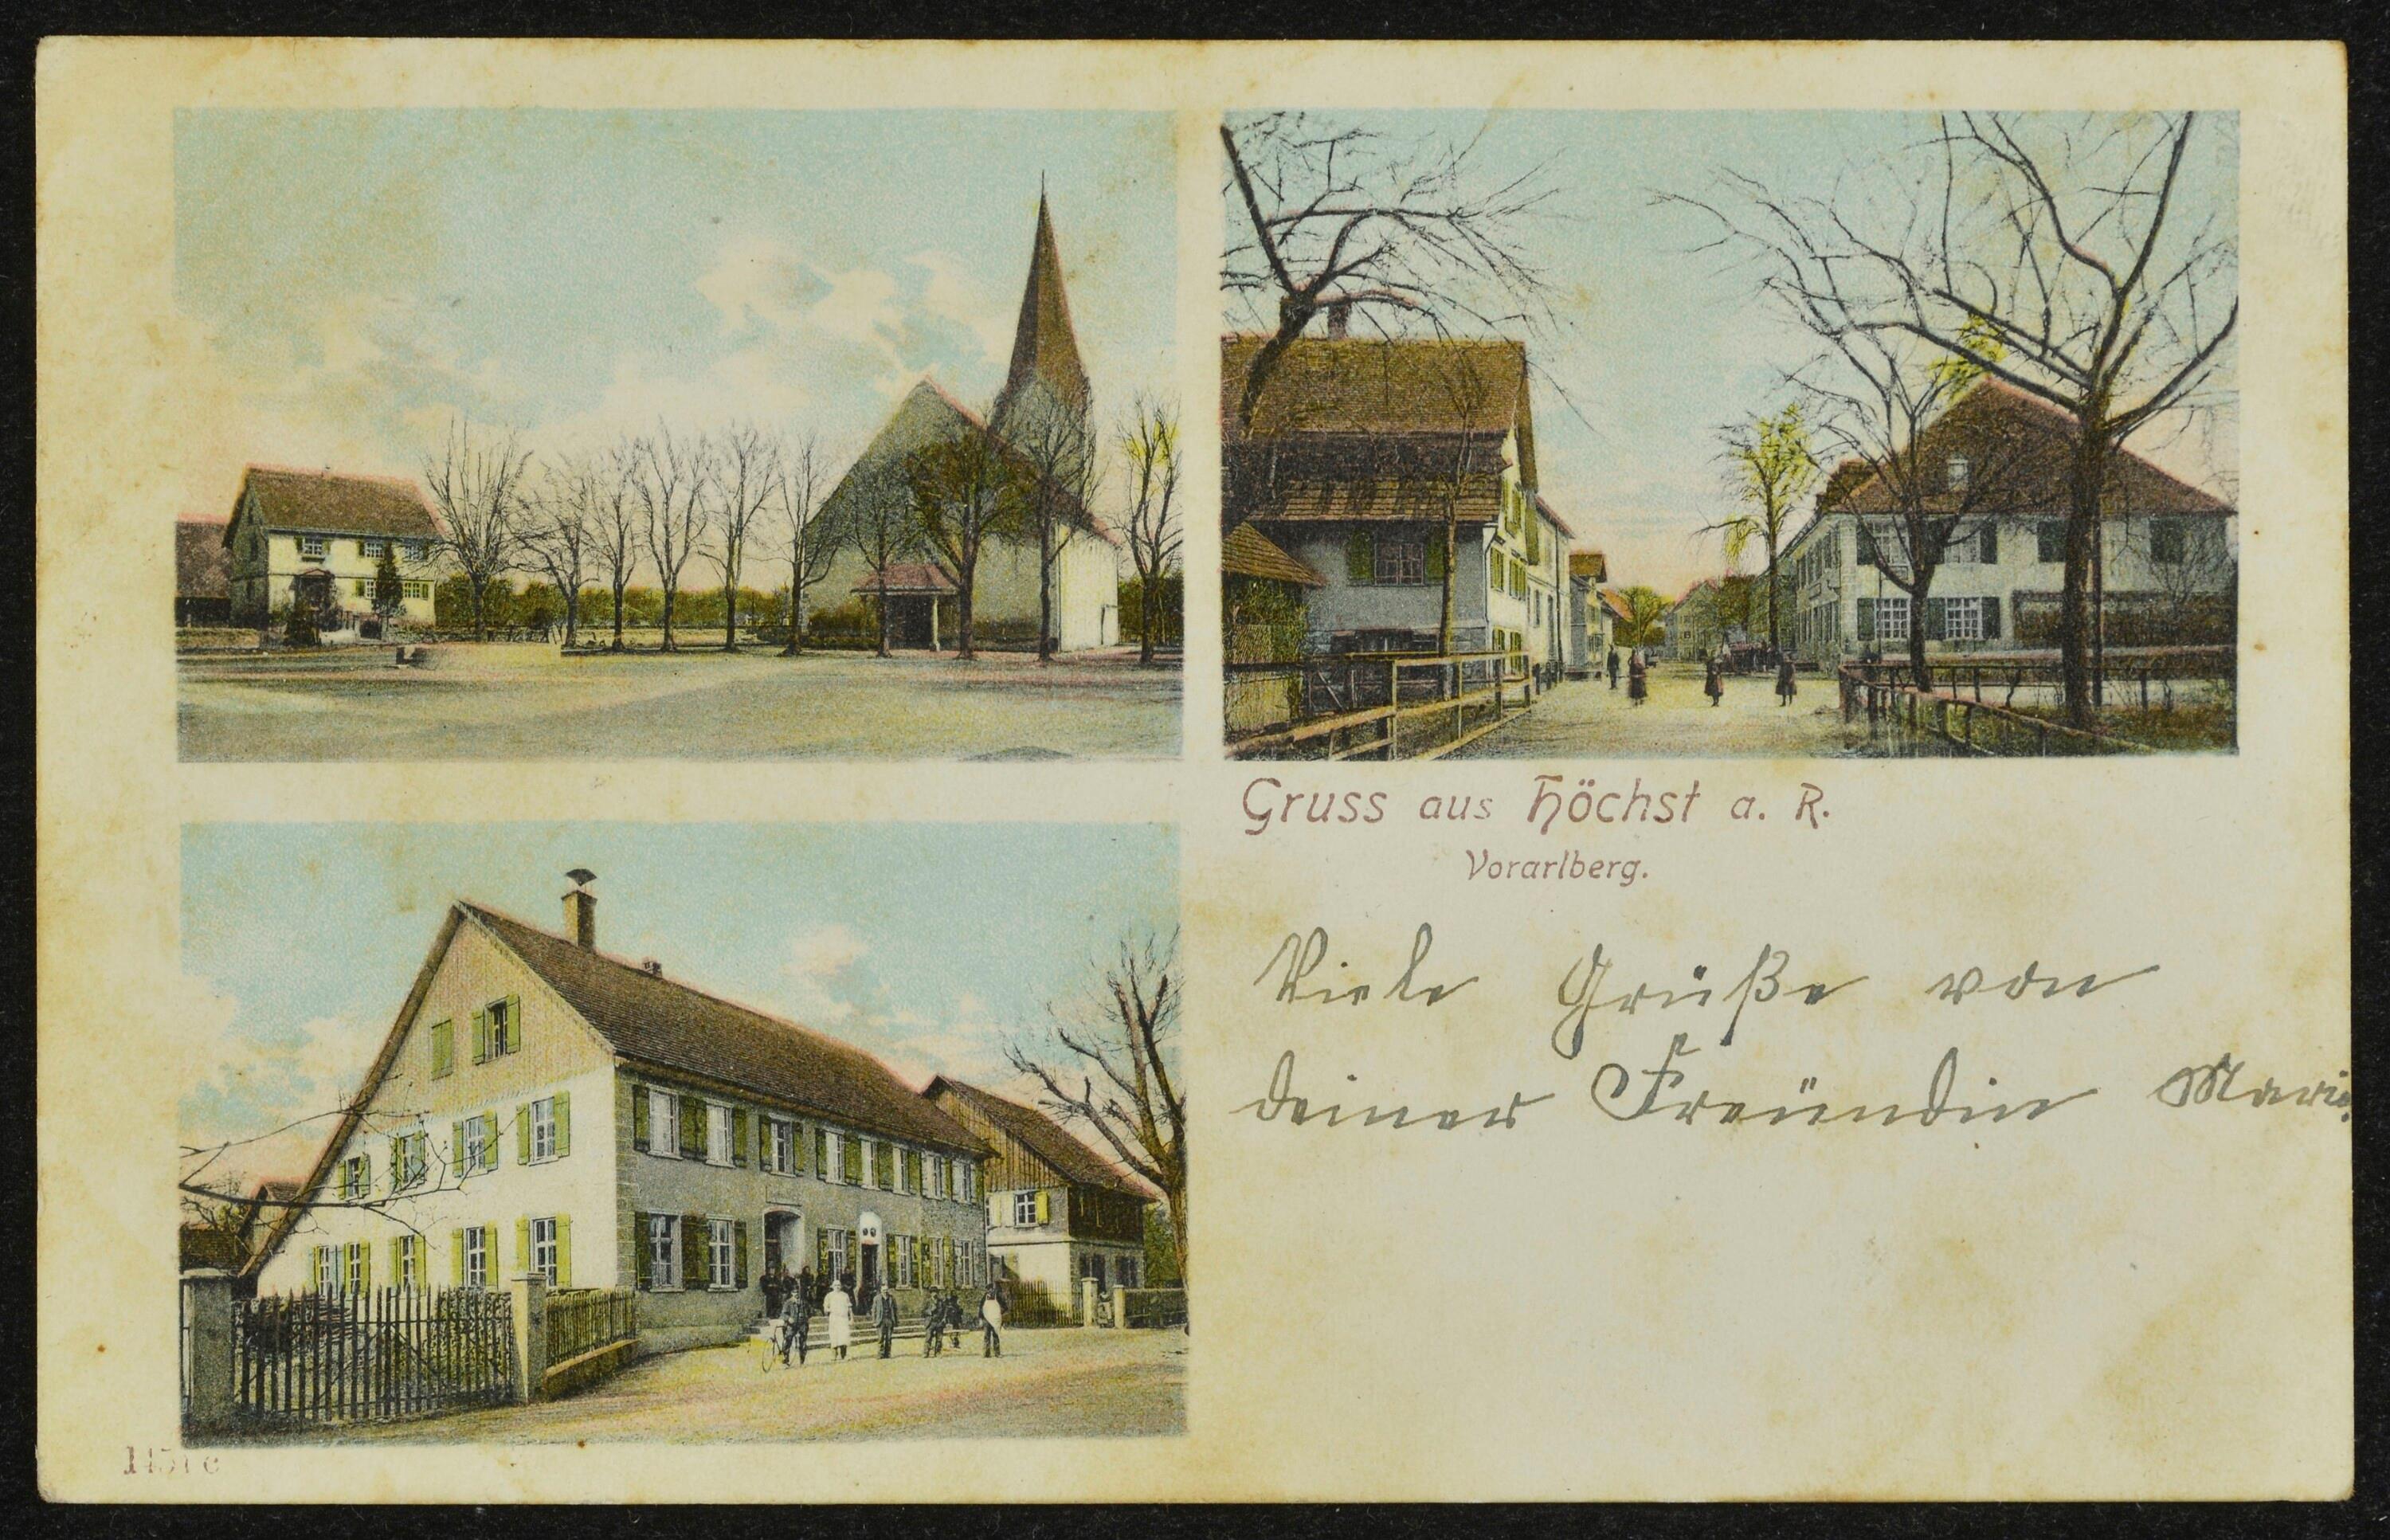 Gruss aus Höchst a. R.
Vorarlberg.
Viele Grüße von
deiner Freundin Marie.